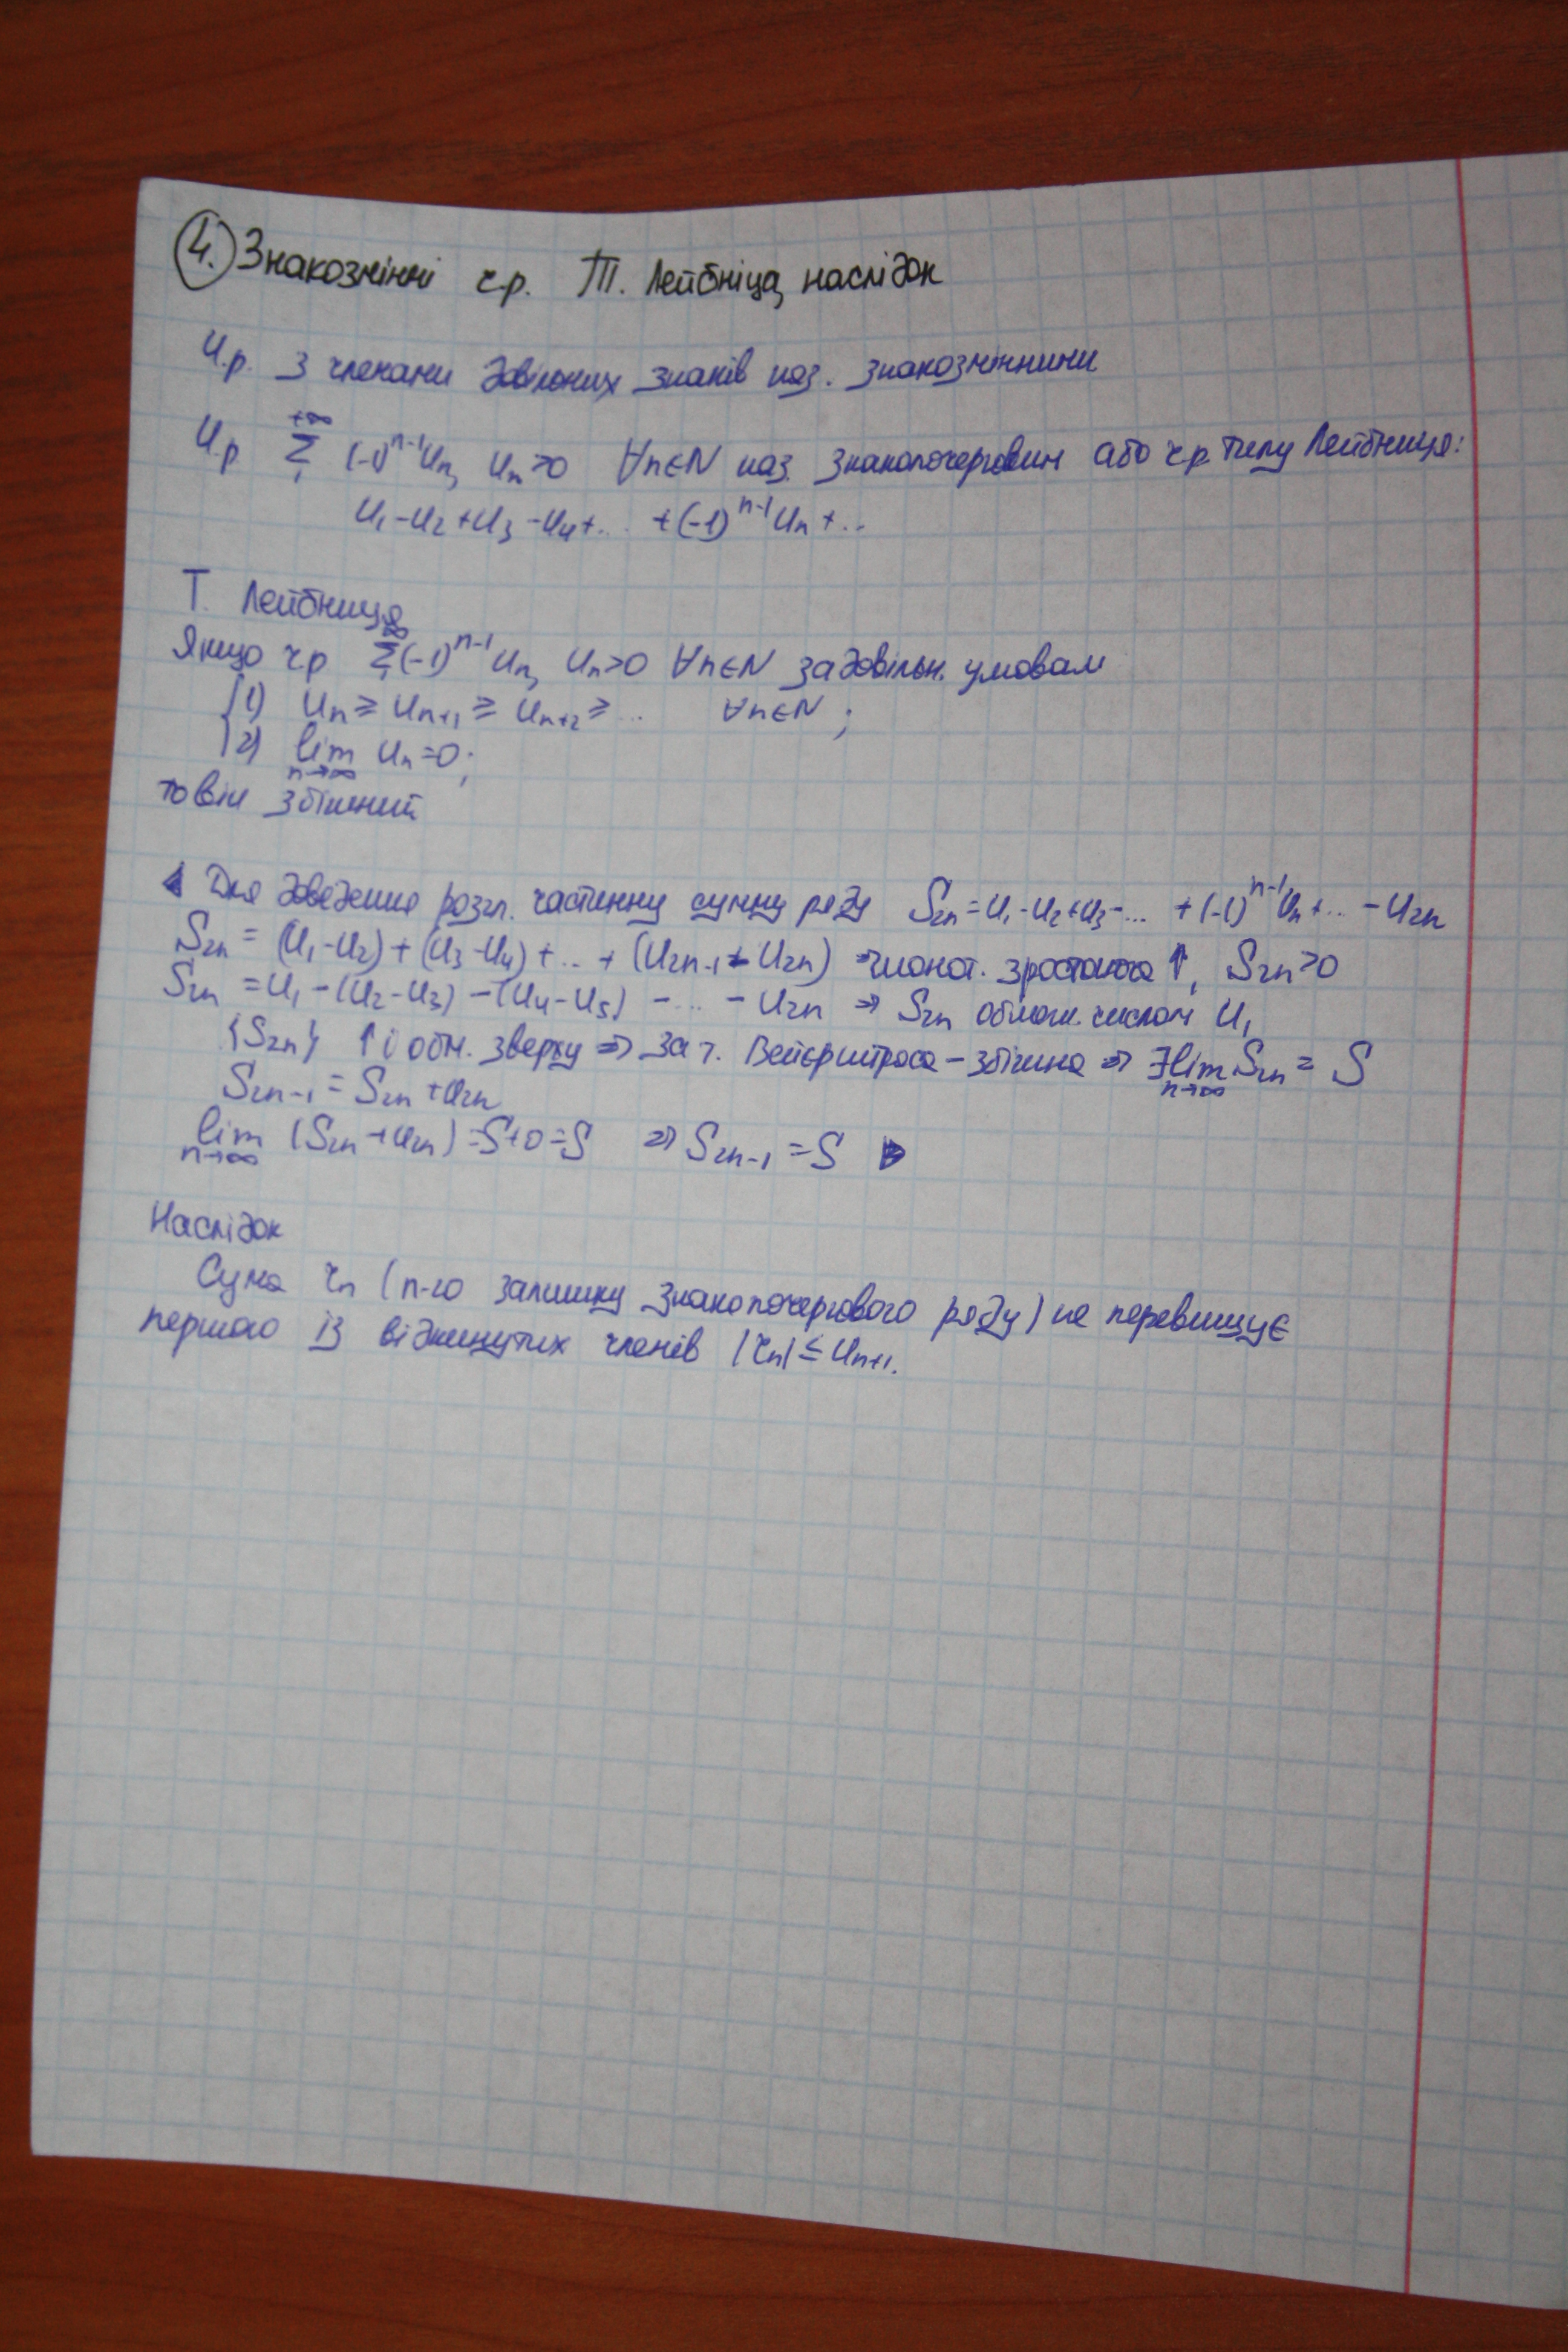 4. Знакозмінні ч.р. Т. Лейбніца, наслідок
Ч.р. з членами довільних знаків наз. знакозмінними
Ч.р. +∞ Σ 1 (-1)^{n-1} Un, Un>0 ∀n∈N наз. знакопочерговим або ч.р. типу Лейбница:
U₁-U₂+U₃-U₄+... +(-1)^{n-1} Un+..
Т. Лейбница
Якщо ч.р ∞ Σ 1 (-1)^{n-1} Un, Un>0 ∀n∈N задовільн. умовам
1) Un ≥ Un+1 ≥ Un+2 ≥ ... ∀n∈N;
2) lim n→∞ Un=0;
то він збіжний
◄ Для доведення розгл. частинну сумму ряду S2n=U₁-U₂+U₃-... +(-1)^{n-1} Un+... -U2n
S2n = (U₁-U₂)+(U₃-U₄)+...+(U2n-1-U2n) - монот. зростаюча ↑, S2n>0
S2n =U₁-(U₂-U₃)-(U₄-U₅) -... -U2n ⇒ S2n обмеж. числом U₁
{S2n} ↑ і обм. зверху ⇒ за т. Веєрштраса - збіжна ⇒ ∃lim n→∞ S2n = S
S2n-1 = S2n+U2n
lim n→∞ (S2n+U2n)=S+0=S ⇒ S2n-1=S ►
Наслідок
Сума rn (n-го залишку знакопочергового ряду) не перевищує
першого із відкинутих членів |rn|≤Un+1.